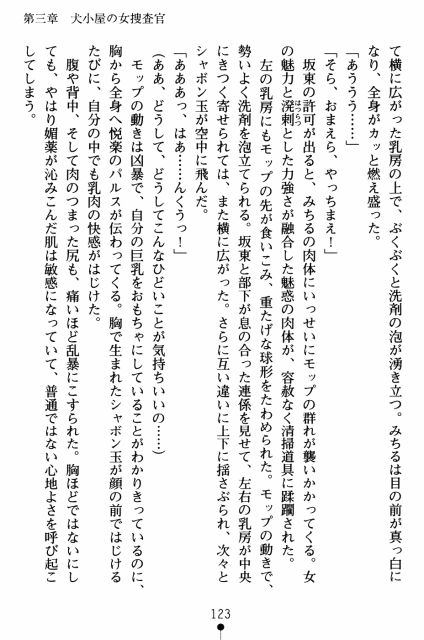 第三章　犬小屋の女捜査官
て横に広がった乳房の上で、ぶくぶくと洗剤の泡が湧き立つ。みちるは目の前が真っ白に
なり、全身がカッと燃え盛った。
「あううう……」
「そら、おまえら、やっちまえ！」
坂東の許可が出ると、みちるの肉体にいっせいにモップの群れが襲いかかってくる。女
の魅力と溌剌とした力強さが融合した魅惑の肉体が、容赦なく清掃道具に蹂躙された。
左の乳房にもモップの先が食いこみ、重たげな球形をたわめられた。モップの動きで、
勢いよく洗剤を泡立てられる。坂東と部下が息の合った連係を見せて、左右の乳房が中央
にきつく寄せられては、また横に広がった。さらに互い違いに上下に揺さぶられ、次々と
シャボン玉が空中に飛んだ。
「あああっ、はあ……んくうっ！」
（ああ、どうして、どうしてこんなひどいことが気持ちいいの……）
モップの動きは凶暴で、自分の巨乳をおもちゃにしていることがわかりきっているのに、
胸から全身へ悦楽のパルスが伝わってくる。胸で生まれたシャボン玉が顔の前ではじける
たびに、自分の中でも乳肉の快感がはじけた。
腹や背中、そして肉のつまった尻も、痛いほど乱暴にこすられた。胸ほどではないにし
ても、やはり媚薬が沁みこんだ肌は敏感になっていて、普通ではない心地よさを呼び起こ
してしまう。
123